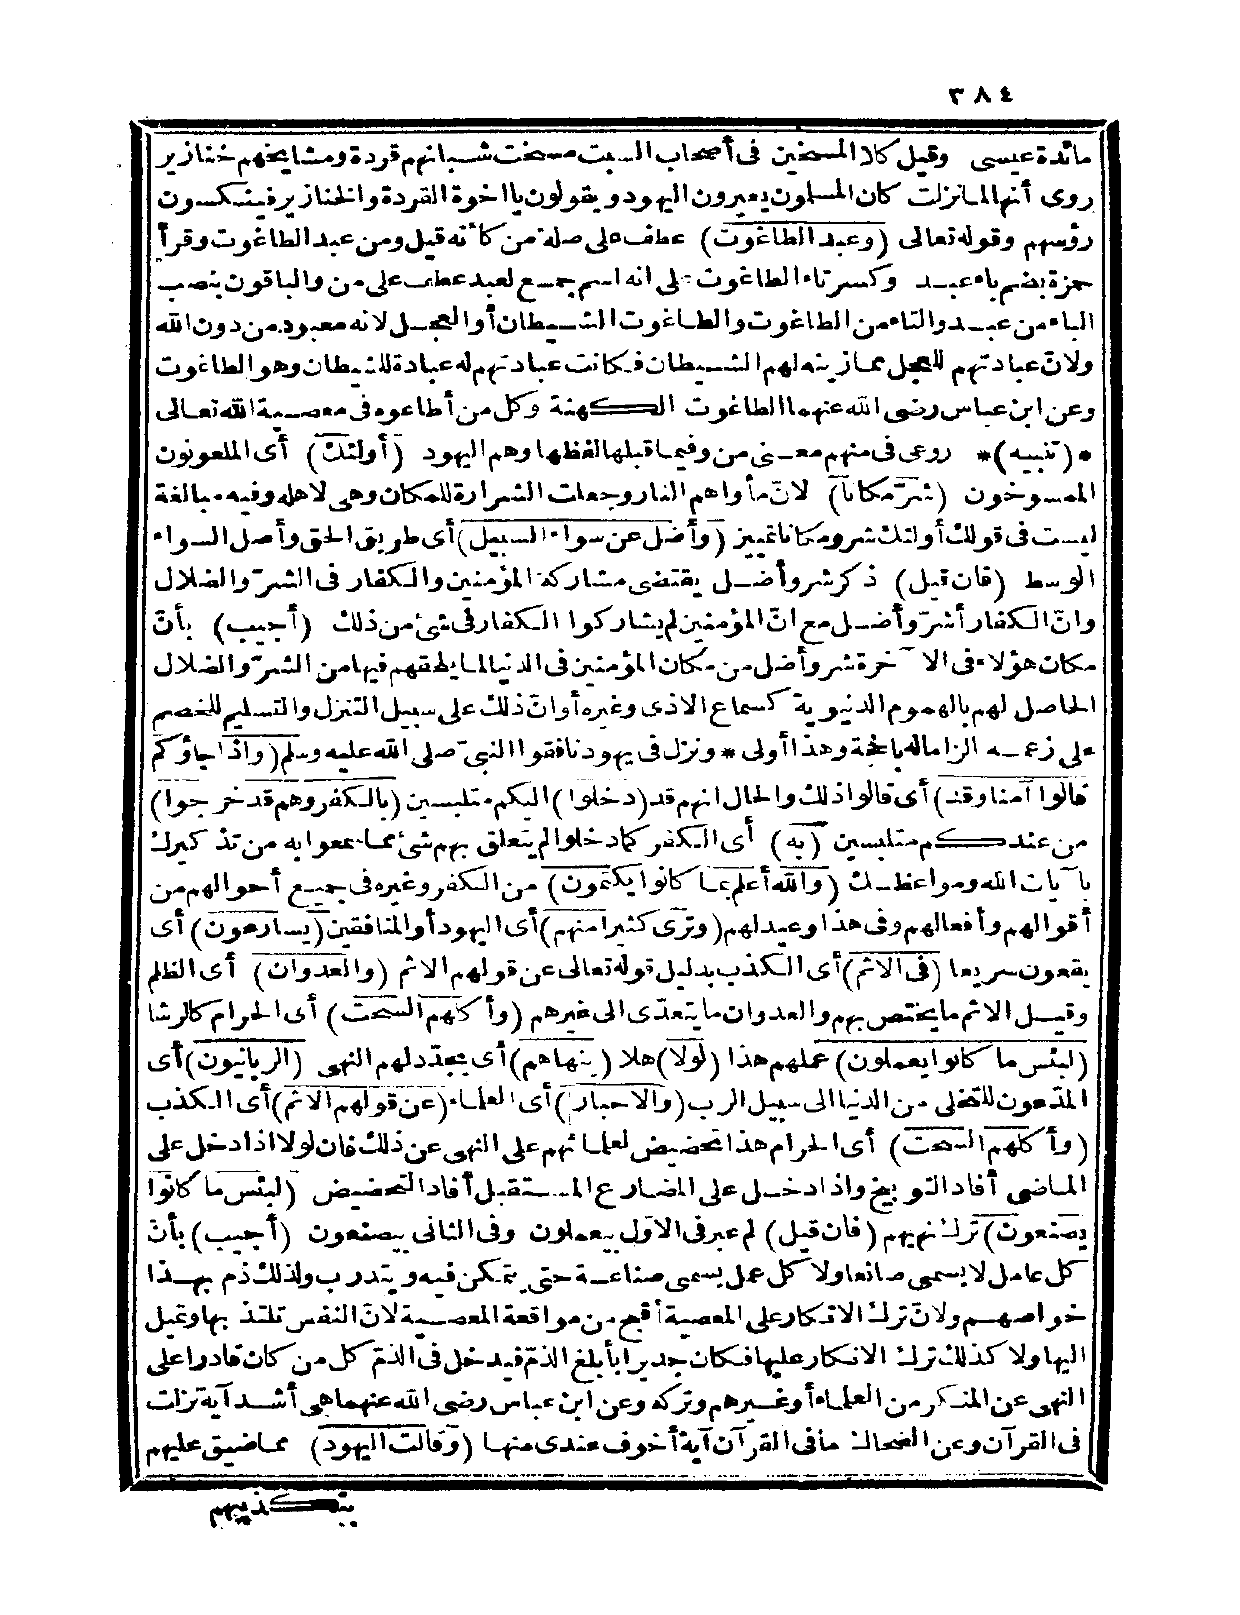 ٣٨٤
مائدة عيسى وقيل كلا المسخين فى أصحاب السبت مسخت شبانهم قردة ومشايخهم خنازير
روى أنها لما نزلت كان المسلمون يعيرون اليهود ويقولون يا اخوة القردة والخنازير فينكسون
رؤسهم وقوله تعالى (وعبد الطاغوت) عطف على صلة من كأنه قيل ومن عبد الطاغوت وقرأ
حمزة بضم باء عبد وكسر تاء الطاغوت على انه اسم جمع لعبد عطف على من والباقون بنصب
الباء من عبد والتاء من الطاغوت والطاغوت الشيطان أو العجل لانه معبود من دون الله
ولانّ عبادتهم للعجل مما زينه لهم الشيطان فكانت عبادتهم له عبادة للشيطان وهو الطاغوت
وعن ابن عباس رضى الله عنهما الطاغوت الكهنة وكل من أطاعوه فى معصية الله تعالى
* (تنبيه)* روعى فى منهم معنى من وفيما قبلها لفظها وهم اليهود (أولئك) أى الملعونون
الممسوخون (شرّ مكانا) لانّ مأواهم النار وجعلت الشرارة للمكان وهى لاهله وفيه مبالغة
ليست فى قولك أولئك شر ومكانا تمييز (وأضل عن سواء السبيل) أى طريق الحق وأصل السواء
الوسط (فان قيل) ذكر شر وأضل يقتضى مشاركة المؤمنين والكفار فى الشرّ والضلال
وانّ الكفار أشرّ وأضل مع انّ المؤمنين لم يشاركوا الكفار فى شئ من ذلك (أجيب) بأنّ
مكان هؤلاء فى الآخرة شر وأضل من مكان المؤمنين فى الدنيا لما يلحقهم فيها من الشرّ والضلال
الحاصل لهم بالهموم الدنيوية كسماع الاذى وغيره أو انّ ذلك على سبيل التنزل والتسليم للخصم
على زعمه الزاما له بالحجة وهذا أولى * ونزل فى يهود نافقوا النبىّ صلى الله عليه وسلم (واذا جاؤكم
قالوا آمنا وقد) أى قالوا ذلك والحال انهم قد (دخلوا) اليكم متلبسين (بالكفر وهم قد خرجوا)
من عندكم متلبسين (به) أى الكفر كما دخلوا لم يتعلق بهم شئ مما سمعوا به من تذكيرك
بآيات الله ومواعظك (والله أعلم بما كانوا يكتمون) من الكفر وغيره فى جميع أحوالهم من
أقوالهم وأفعالهم وفى هذا وعيد لهم (وترى كثيرا منهم) أى اليهود أو المنافقين (يسارعون) أى
يقعون سريعا (فى الاثم) أى الكذب بدليل قوله تعالى عن قولهم الاثم (والعدوان) أى الظلم
وقيل الاثم ما يختص بهم والعدوان ما يتعدّى الى غيرهم (وأكلهم السحت) أى الحرام كالرشا
(لبئس ما كانوا يعملون) عملهم هذا (لولا) هلا (ينهاهم) أى يجدّد لهم النهى (الربانيون) أى
المدّعون للتخلى من الدنيا الى سبيل الرب (والاحبار) أى العلماء (عن قولهم الاثم) أى الكذب
(وأكلهم السحت) أى الحرام هذا تحضيض لعلمائهم على النهى عن ذلك فان لولا اذا دخل على
الماضى أفاد التوبيخ واذا دخل على المضارع المستقبل أفاد التحضيض (لبئس ما كانوا
يصنعون) ترك نهيهم (فان قيل) لم عبر فى الاوّل بيعملون وفى الثانى بيصنعون (أجيب) بأنّ
كل عامل لا يسمى صانعا ولا كل عمل يسمى صناعة حتى يتمكن فيه ويتدرب ولذلك ذم بهذا
خواصهم ولانّ ترك الانكار على المعصية أقبح من مواقعة المعصية لانّ النفس تلتذ بها وتميل
اليها ولا كذلك ترك الانكار عليها فكان جديرا بأبلغ الذمّ فيدخل فى الذمّ كل من كان قادرا على
النهى عن المنكر من العلماء أو غيرهم وتركه وعن ابن عباس رضى الله عنهما هى أشد آية نزلت
فى القرآن وعن الضحاك ما فى القرآن آية أخوف عندى منها (وقالت اليهود) مما ضيق عليهم
بتكذيبهم